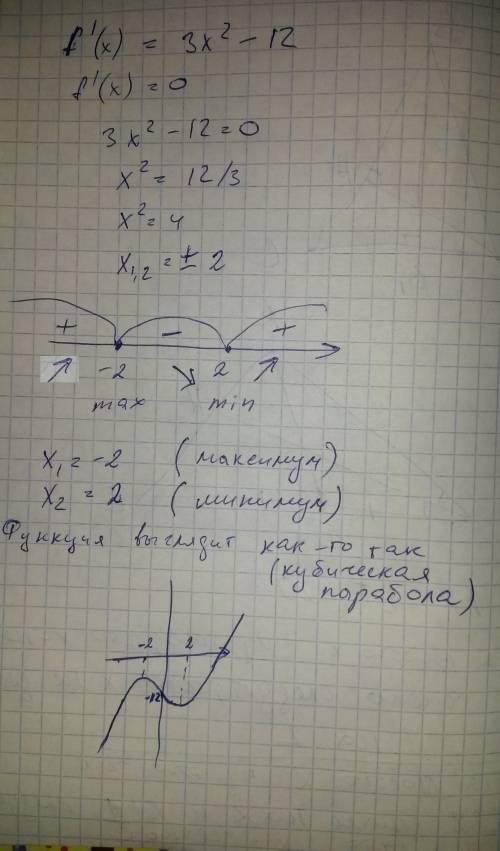 f'(x) = 3x² - 12
f'(x) = 0
3x² - 12 = 0
x² = 12/3
x² = 4
x₁,₂ = ± 2
+ - +
↗ -2 ↘ 2 ↗
max min
x₁ = -2 (максимум)
x₂ = 2 (минимум)
Функция выглядит как-то так
(кубическая
парабола)
-2 2
-12